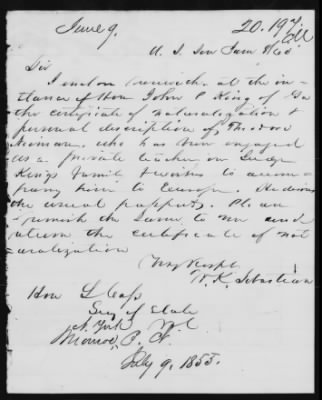 June 9.
20.197
U. S. Sen
Sir
I enclose herewith at the in-
stance of Hon John P King of Ga
the certificate of naturalization &
personal description of Theodore
who has been engaged
as a private teacher in Judge
Kings family & wishes to accom-
pany him to Europe. He desires
the usual passport. Please
furnish the same to me and
return the certificate of nat
uralization
Very Respt
W. K. Sebastian
Hon L Cass
Secy of State
N. York
July 9, 1855.